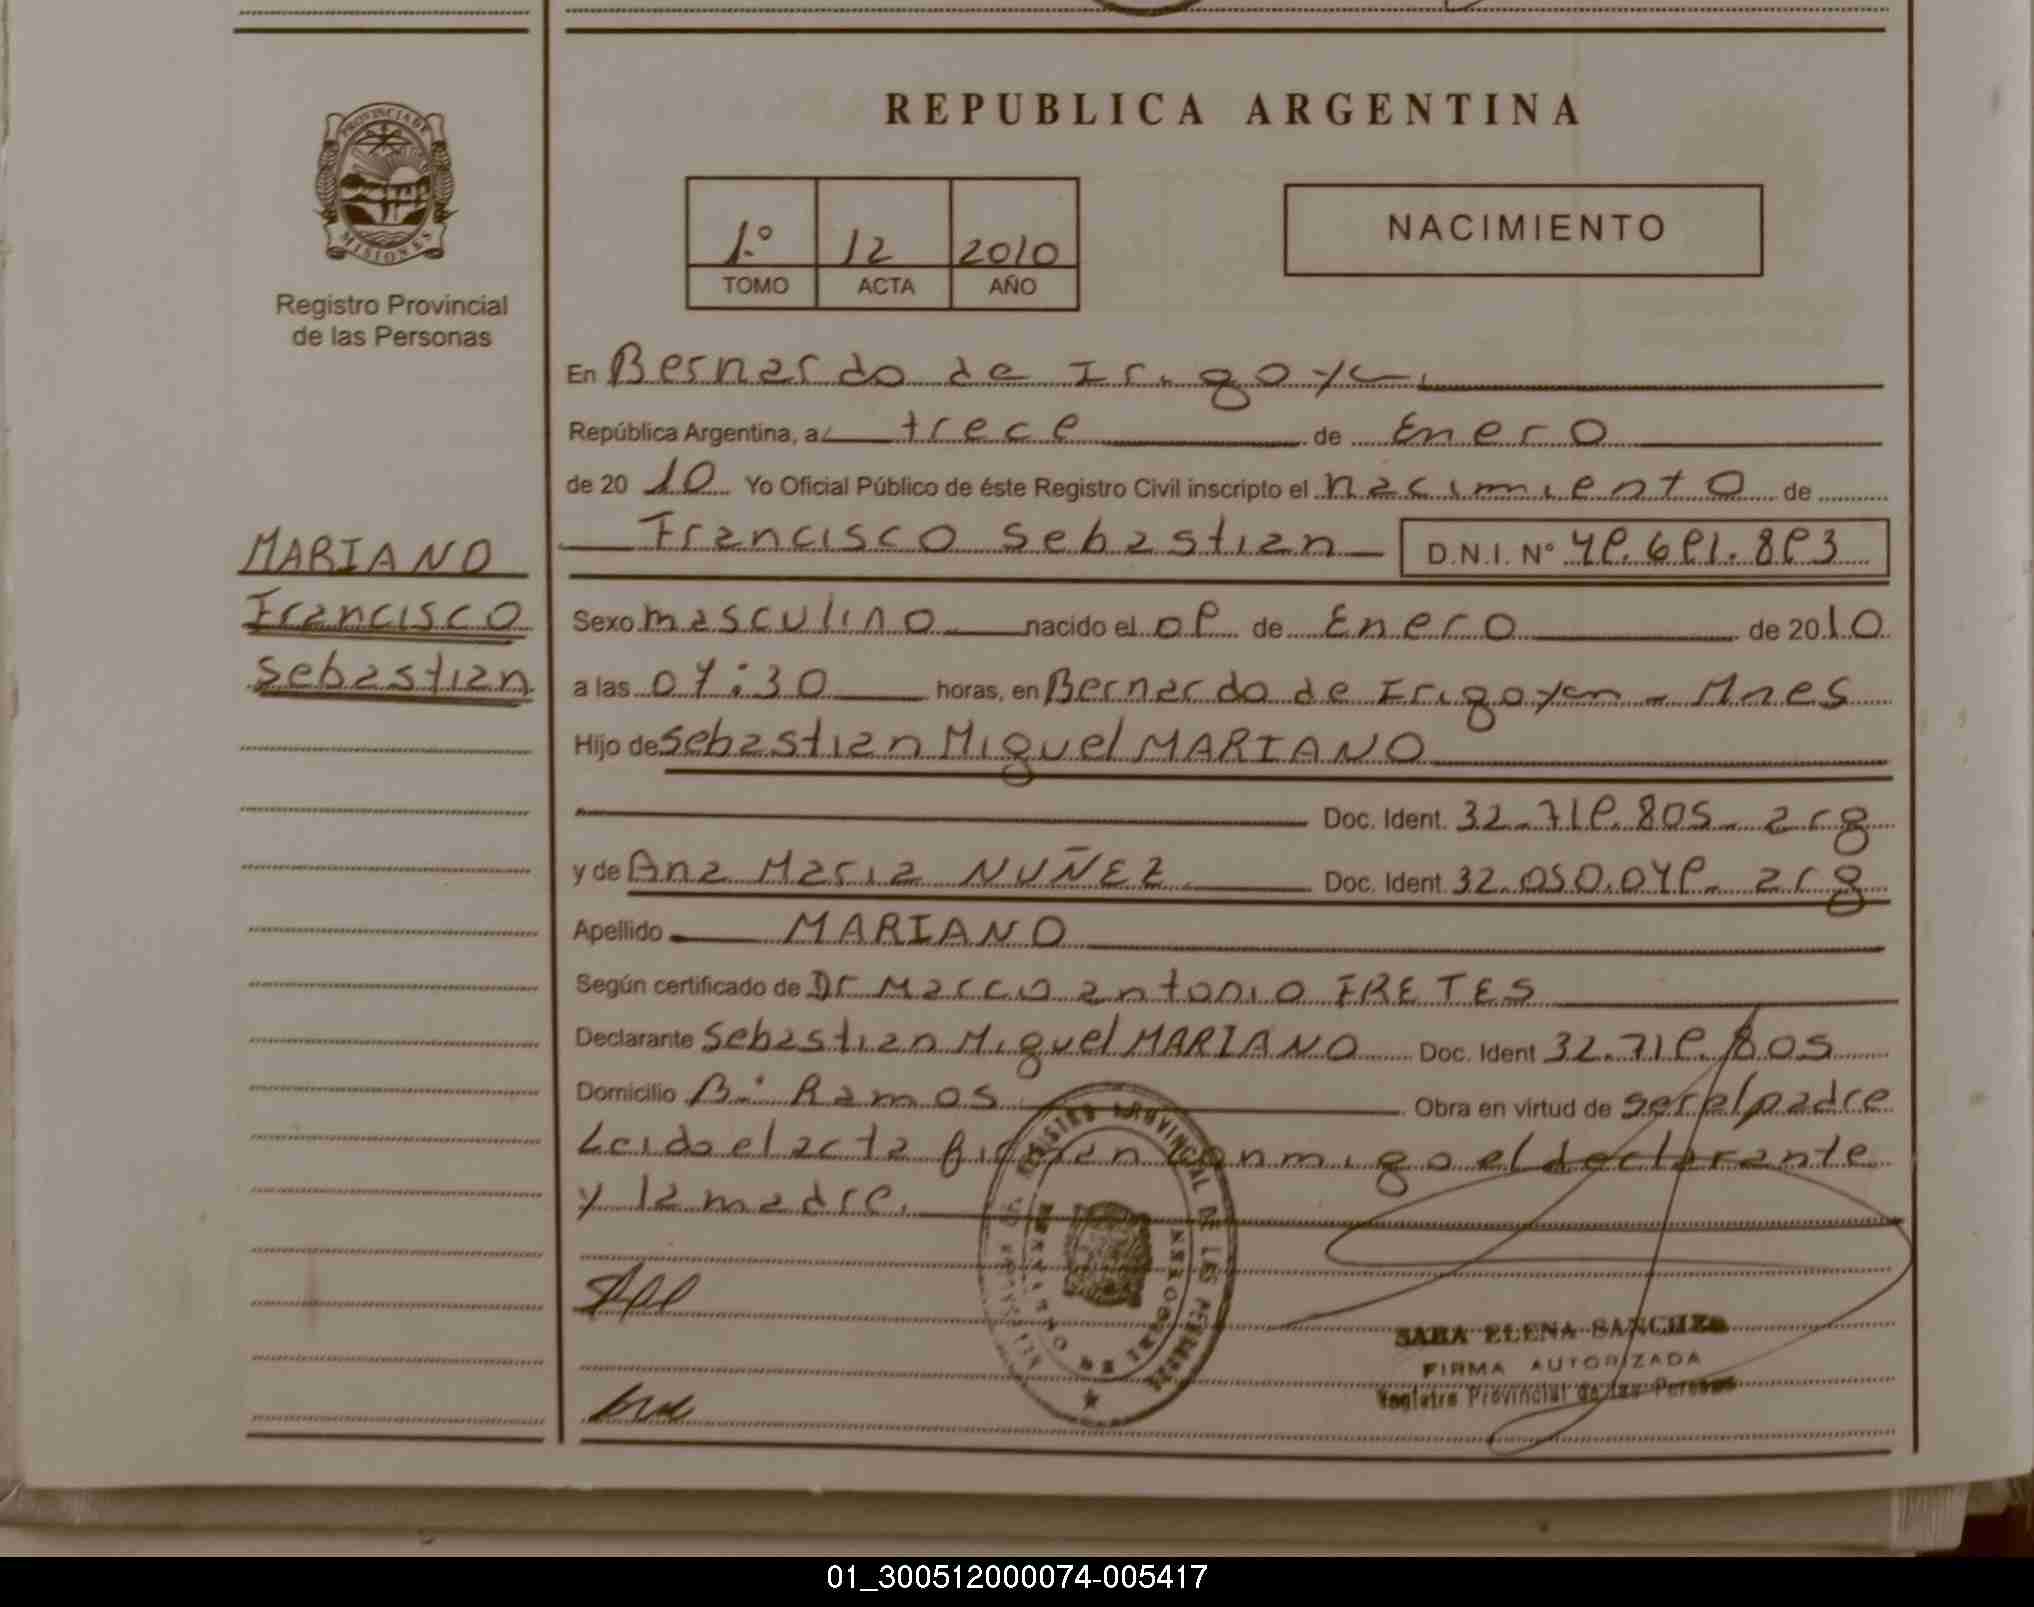 REPUBLICA ARGENTINA
PROVINCIA DE
MISIONES
Registro Provincial
de las Personas
1.º 12 2010
TOMO ACTA AÑO
NACIMIENTO
En Bernardo de Irigoyen
República Argentina, a trece de Enero
de 2010 Yo Oficial Público de éste Registro Civil inscripto el nacimiento de
Francisco Sebastian D.N.I. Nº 49.691.893
MARIANO
Francisco
Sebastian
Sexo masculino nacido el 09 de Enero de 2010
a las 04:30 horas, en Bernardo de Irigoyen - Mnes
Hijo de Sebastian Miguel MARIANO
Doc. Ident. 32-719.805- arg
y de Ana Maria NUÑEZ Doc. Ident 32.050.049- arg
Apellido MARIANO
Según certificado de Dr Marco antonio FRETES
Declarante Sebastian Miguel MARIANO Doc. Ident 32.719.805
Domicilio B: Ramos Obra en virtud de ser el padre
Leido el acta firman conmigo el declarante
y la madre.
REGISTRO PROVINCIAL DE LES PERSONAS
SARA ELENA SANCHEZ
FIRMA AUTORIZADA
Registro Provincial de las Personas
01_300512000074-005417